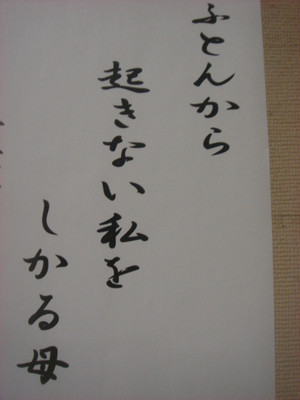 ふとんから
起きない私を
しかる母